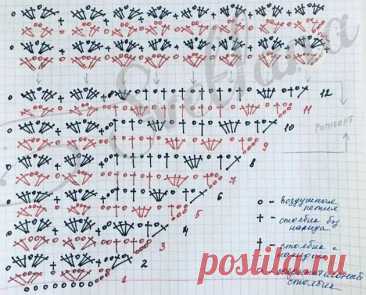 Svetlana
12
11
Раппорт
10
9
8
7
6
5
4
3
2
1
o - воздушные
петли
+ - столбик без
накида
† - столбик с
накидом
столбик
postila.ru